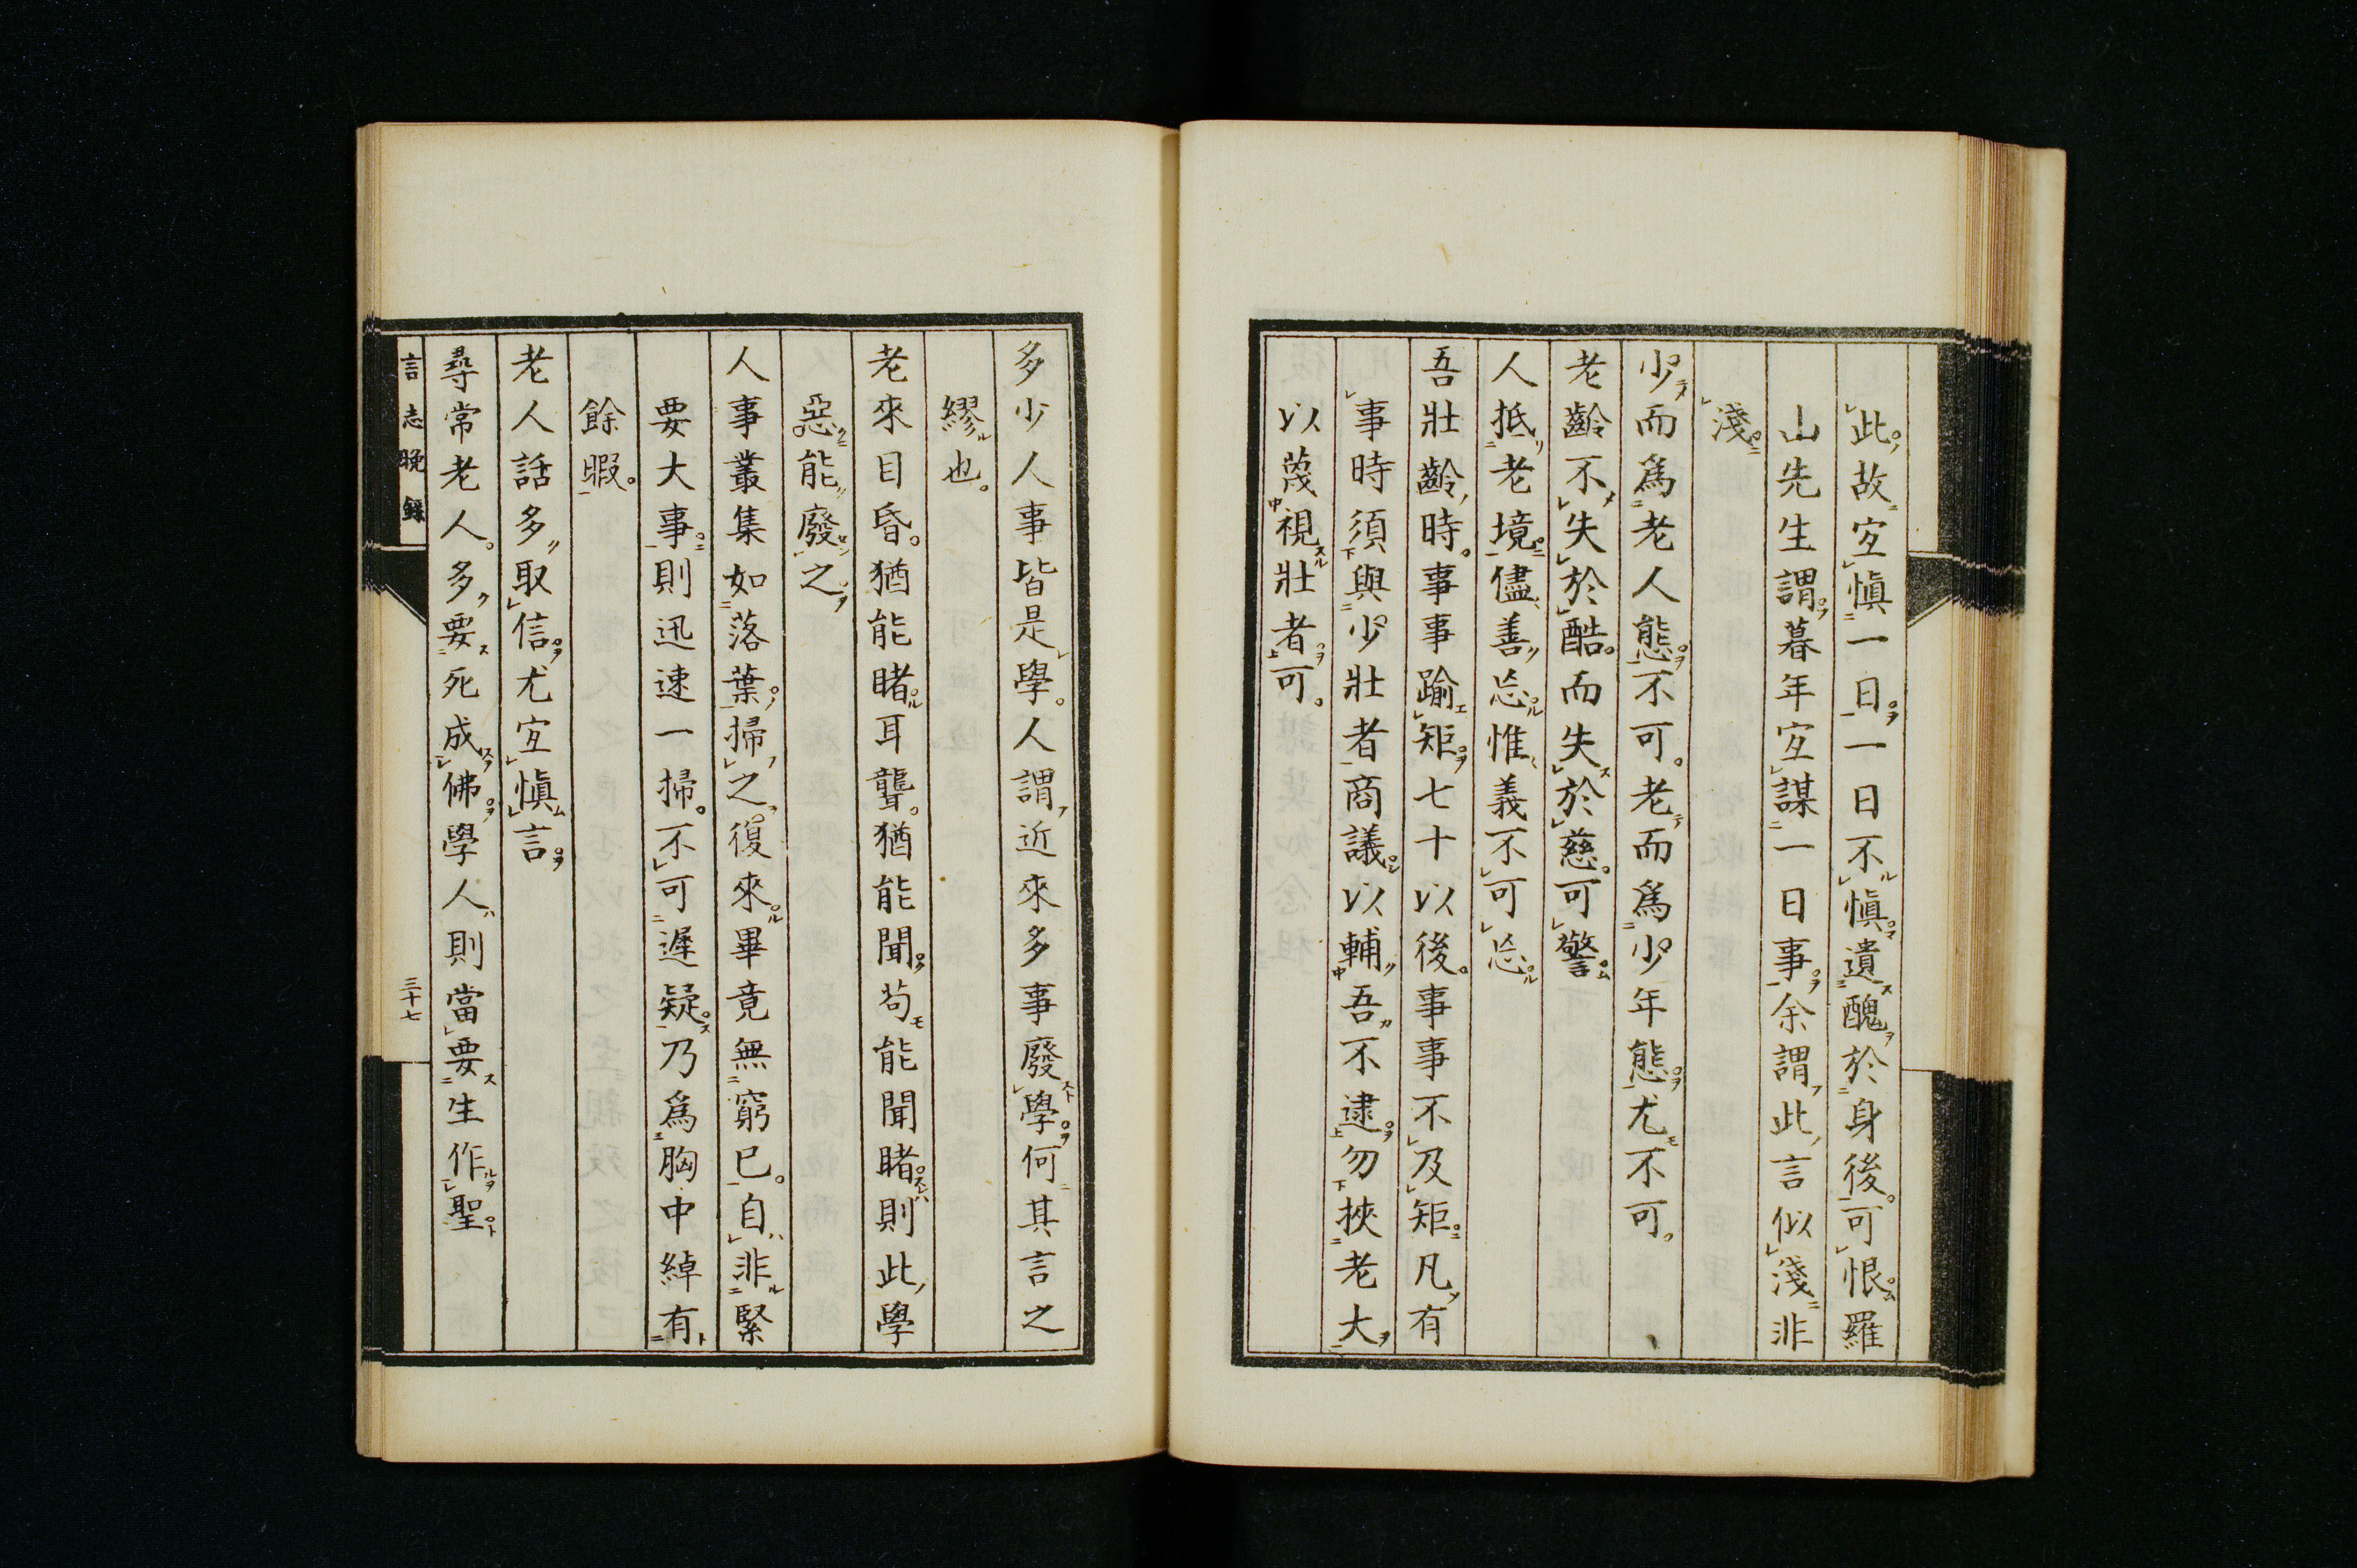 此故宜愼一日一日不愼遺醜於身後可恨羅
山先生謂暮年宜謀一日事余謂此言似淺非
淺
少而爲老人態不可。老而爲少年態尤不可。
老齡不失於酷。而失於慈。可警
人抵老境儘善忘惟義不可忘
吾壯齡時。事事踰矩七十以後。事事不及矩凡有
事時須與少壯者商議以輔吾不逮勿挾老大
以蔑視壯者可。
多少人事皆是學。人謂近來多事廢學何其言之
繆也。
老來目昏。猶能睹耳聾。猶能聞苟能聞睹則此學
惡能廢之
人事叢集如落葉掃之復來畢竟無窮已。自非緊
要大事則迅速一掃。不可遲疑乃爲胸中綽有
餘暇。
老人話多取信尤宜愼言
尋常老人。多要死成佛學人則當要生作聖
言志晚錄
三十七